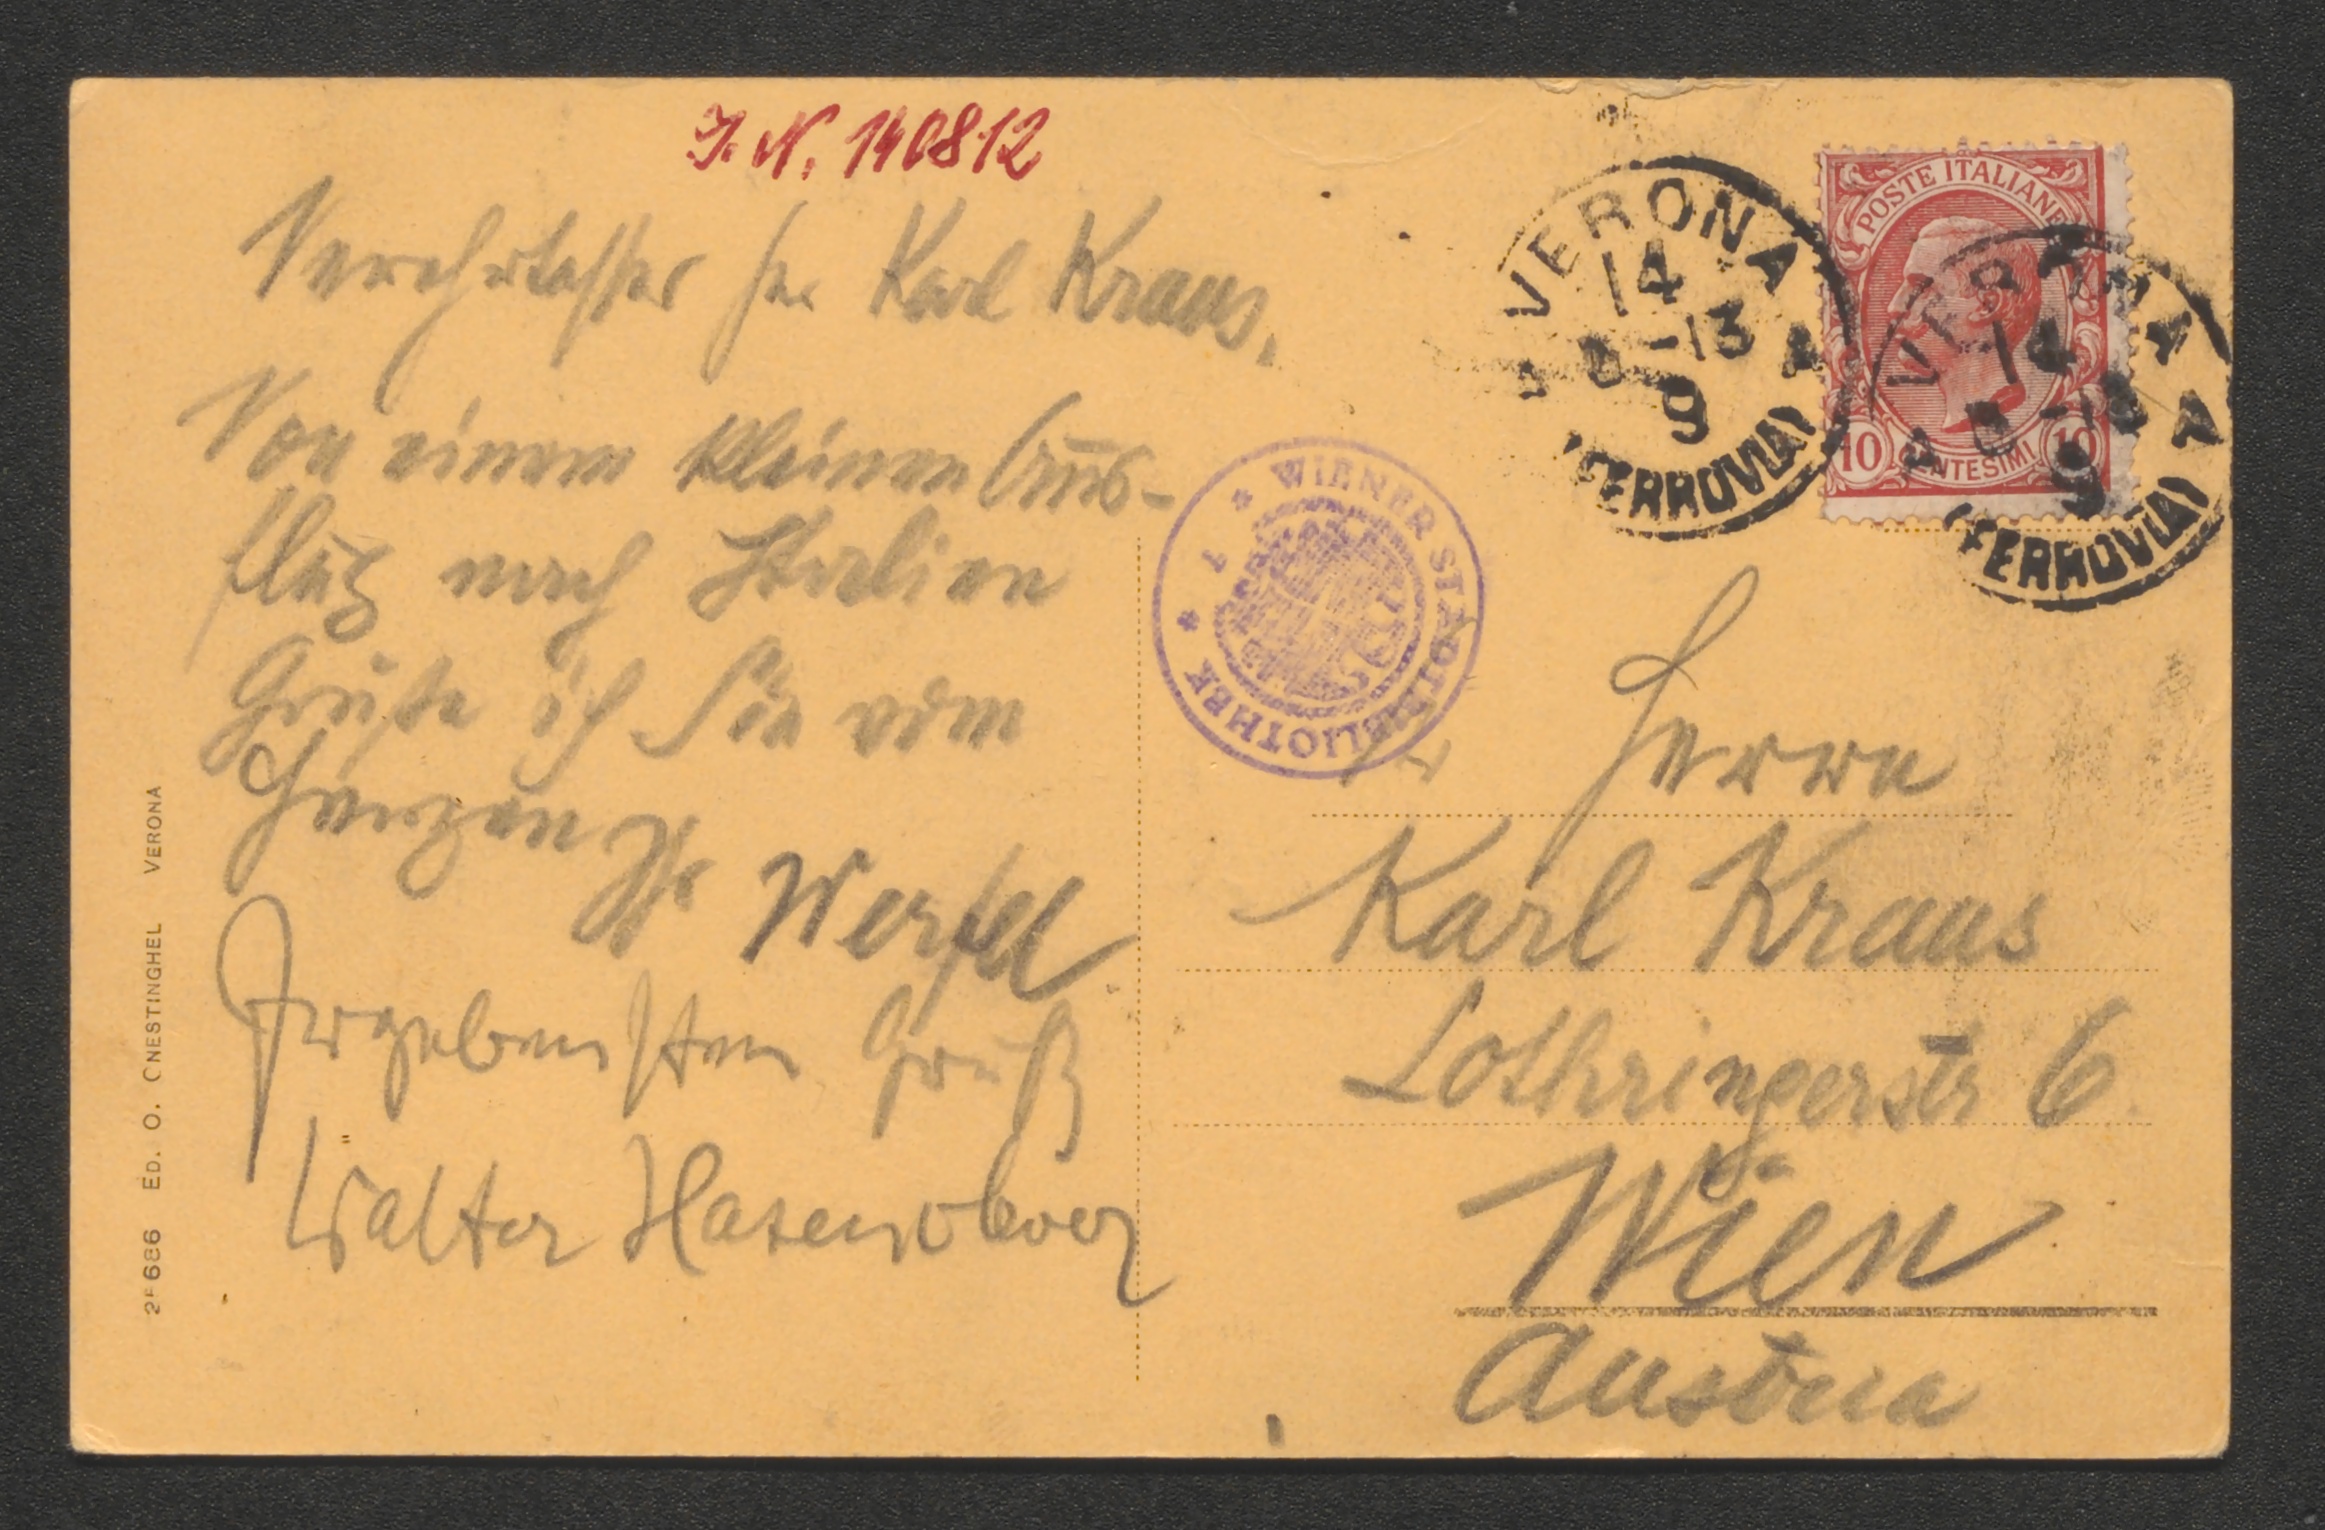 J. N. 140812
Verehrtester Herr Karl Kraus,
Von einem kleinen Aus-
flug nach Italien
Grüße ich Sie vom
Herzen Ihr Werfel
Ergebensten Gruß
Walter Hasenclever
ED. O. ONESTINGHEL VERONA
WIENER STADTBIBLIOTHEK
VERONA
14
-13
9
(FERROVIA)
POSTE ITALIANE
10 CENTESIMI 10
VERONA
14
9
(FERROVIA)
Herrn
Karl Kraus
Lothringerstr 6
Wien
Austria